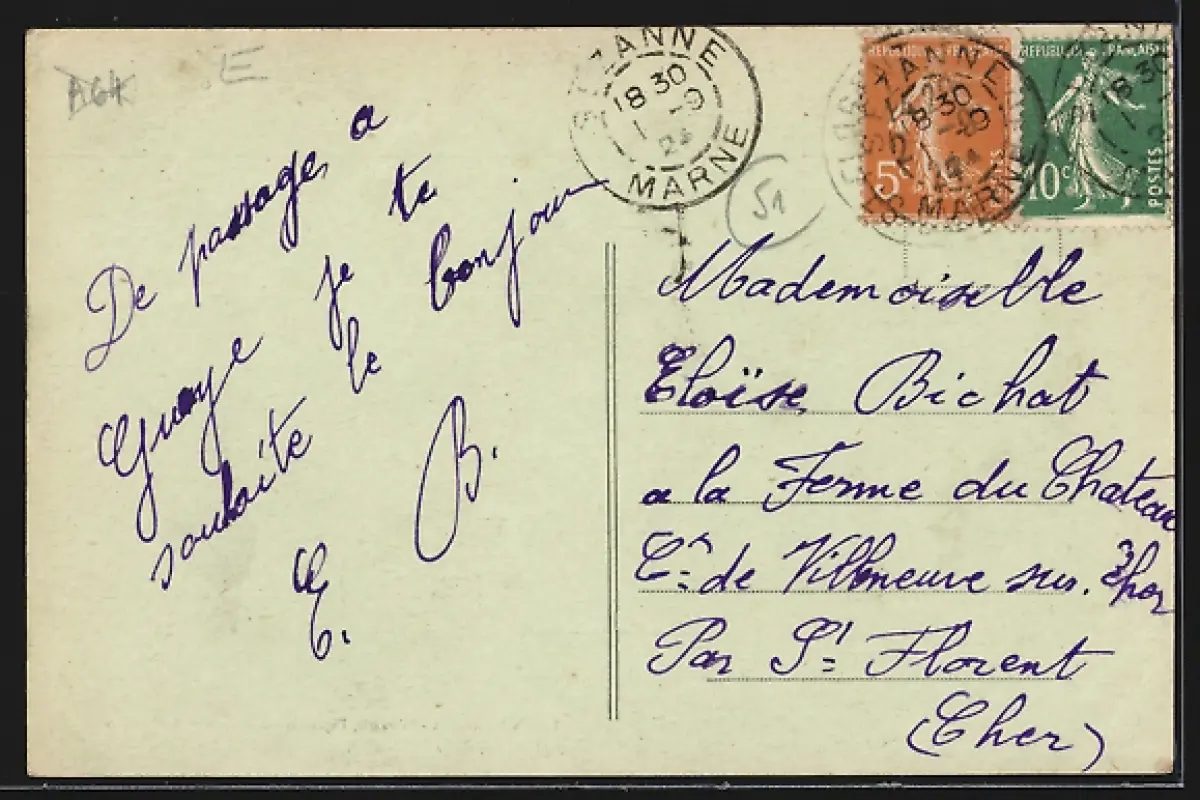 A64
E
SEZANNE
18 30
1 -9
24
MARNE
51
REPUBLIQUE FRANCAISE
5
10c
POSTES
De passage a
Gueaye je te
souhaite le bonjour
E. B.
Mademoiselle
Eloïse Bichat
a la Ferme du Chateau
Cne de Villeneuve sur. Cher
Par St Florent
(Cher)